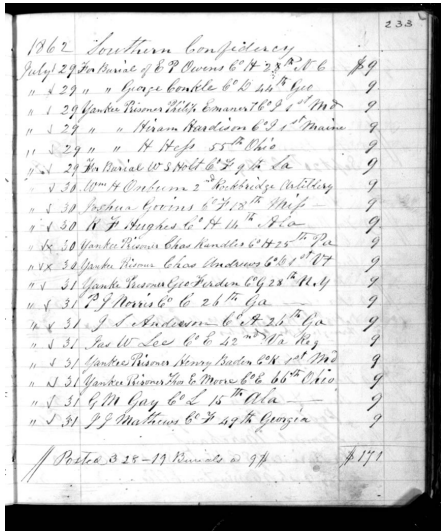 233
1862 Southern Confidercy
July 1 29 For Burial of E P Owens Co H 28th N C $9
" & 29 " " George Conkle Co D 44th Geo 9
" & 29 Yankee Prisoner Philip Co I 1st Md 9
" & 29 " " Hiram Hardison Co I 1st Maine 9
" & 29 " " H Hess 55th Ohio 9
" & 29 For Burial W S Holt Co F 9th La 9
" & 30 Wm H Onbum 2nd Rockbridge Artillery 9
" & 30 Joshua Govins Co F 18th Miss 9
" & 30 R F Hughes Co H 14th Ala 9
" & 30 Yankee Prisoner Chas Randles Co H 25th Pa 9
" & 30 Yankee Prisoner Chas Andrews Co D 1st Vt 9
" & 31 Yankee Prisoner Geo Ferden Co G 28th N.Y 9
" & 31 P J Norris Co C 26th Ga 9
" & 31 J S Anderson Co A 26th Ga 9
" & 31 Jas W Lee Co E 42nd Va Reg 9
" & 31 Yankee Prisoner Henry Co K 1st Md 9
" & 31 Yankee Prisoner Thos E Moore Co E 66th Ohio 9
" & 31 G M Gay Co L 15th Ala 9
" & 31 J J Mathews Co F 49th Georgia 9
// Posted 328 - 19 Burials @ 9$ $171